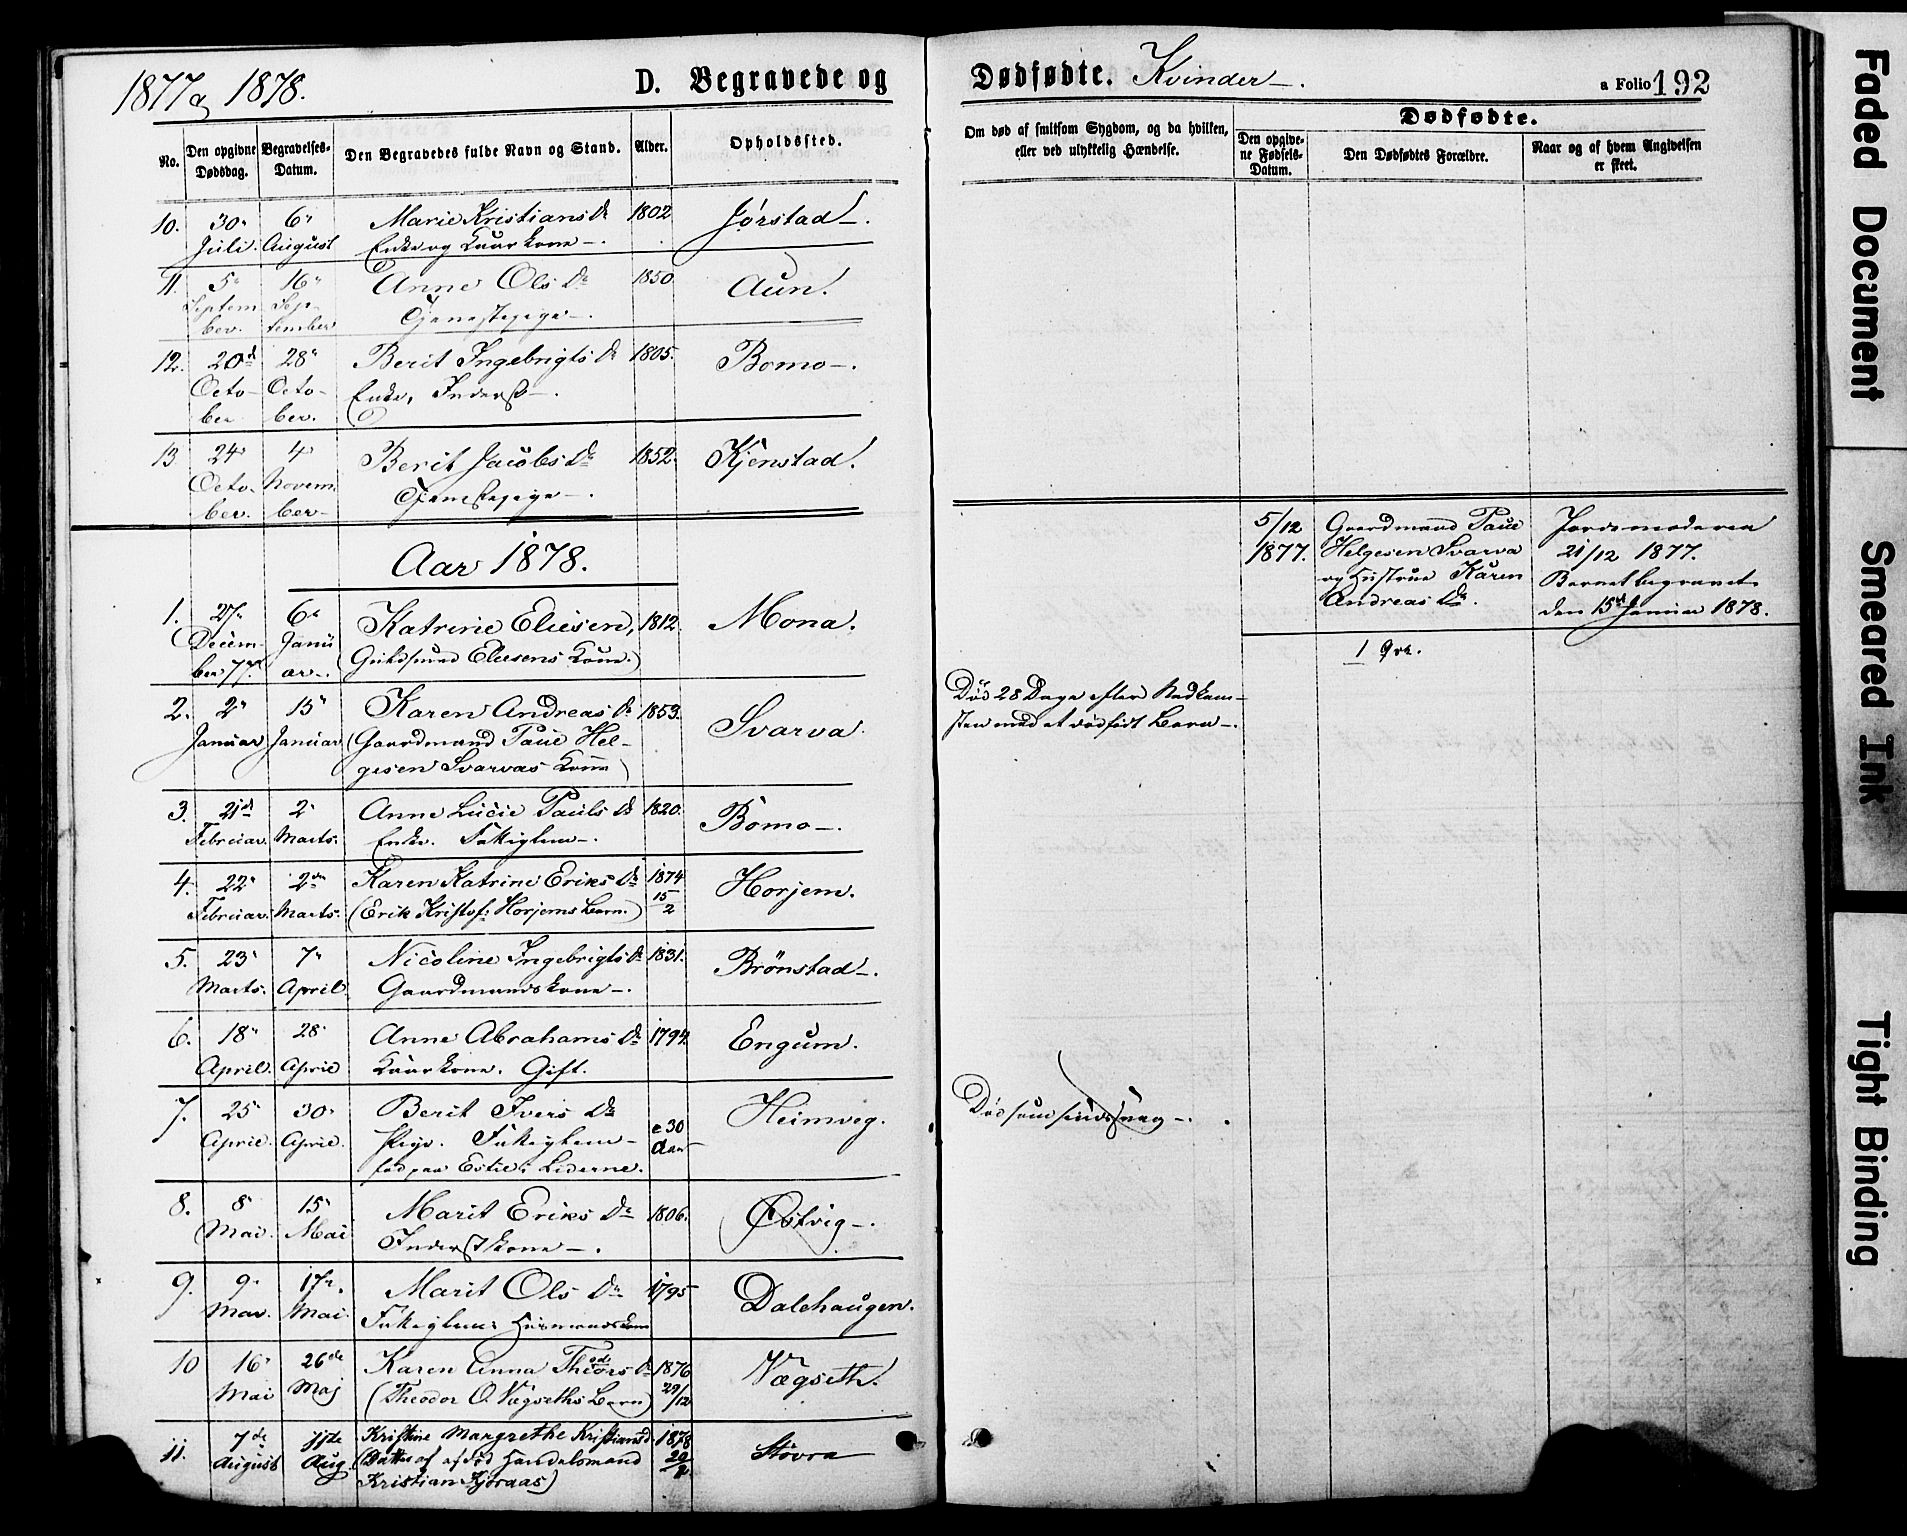 1877 og 1878.
D. Begravede og
No.
Den opgivne Dødsdag.
Begravelses-Datum.
Den Begravedes fulde Navn og Stand.
Alder.
Opholdssted.
10. 30' Juli. 6' August Marie Kristians Dr 1802 Jørstad.
Enke og Kaarkone.
11. 5' September. 16' September Anne Ols Dr 1850 Aun.
Tjenestepige.
12. 20d October 28' October. Berit Ingebrigts Dr 1805. Bomo.
Enke, Inderst.
13 24' October. 4' November Berit Jacobs Dr 1852. Kjenstad.
Tjenestepige.
Aar 1878.
1. 27' December 77. 6' Januar. Katrine Eliesen, 1812. Mona.
(Guldsmed Eliesens Kone.)
2. 2' Januar 15' Januar Karen Andreas Dr 1853. Svarva.
(Gaardmand Paul Helgesen Svarvas Kone)
3. 21d Februar. 2' Marts. Anne Lucie Pauls Dr 1820. Bomo.
Enke. Fattiglem.
4. 22' Februar. 2den Marts. Karen Katrine Eriks Dr 1874 15/2 Horjem.
(Erik Kristof: Horjems Barn.)
5. 23' Marts. 7' April. Nicoline Ingebrigts Dr 1831. Brönstad.
Gaardmandskone.
6. 18' April. 28' April Anne Abrahams Dr 1794. Engum.
Kaarkone. Gift.
7. 25' April. 30' April. Berit Ivers Dr c 30 Aar Heimveg.
Pige. Fattiglem
8. 8' Mai. 15' Mai Marit Eriks Dr 1806. Østvig.
Inderstkone.
9. 9' Mai. 17' Mai. Marit Ols Dr 1795 Dalehaugen.
Fattiglem: Husmandskone
10 16' Mai 26de Maj Karen Anna Theodors Dr 1876 29/12 Vægseth.
(Theodor O. Vægseths Barn)
11. 7de August 11te Aug. Kristine Margrethe Kristiansd. 1878 Støvra
(Datter af afdød Handelsmand
Kristian Kjøraas)
Dødfødte. Kvinder.
a Folio 192
Om død af smitsom Sygdom, og da hvilken,
eller ved ulykkelig Hændelse.
Dødfødte.
Den opgivene Fødsels-Datum.
Den Dødfødtes Forældre.
Naar og af hvem Angivelsen
er skeet.
5/12 1877.
Gaardmand Paul
Helgesen Svarva
og Hustrue Karen
Andreas Dr.
Jordemoderen
21/12 1877.
Barnet begravet
den 15d Januar 1878.
1 Qv.
Död 28 Dage efter Nedkomsten med et dødfødt Barn.
Död som sindssvag.
Faded Document
Smeared Ink
Tight Binding